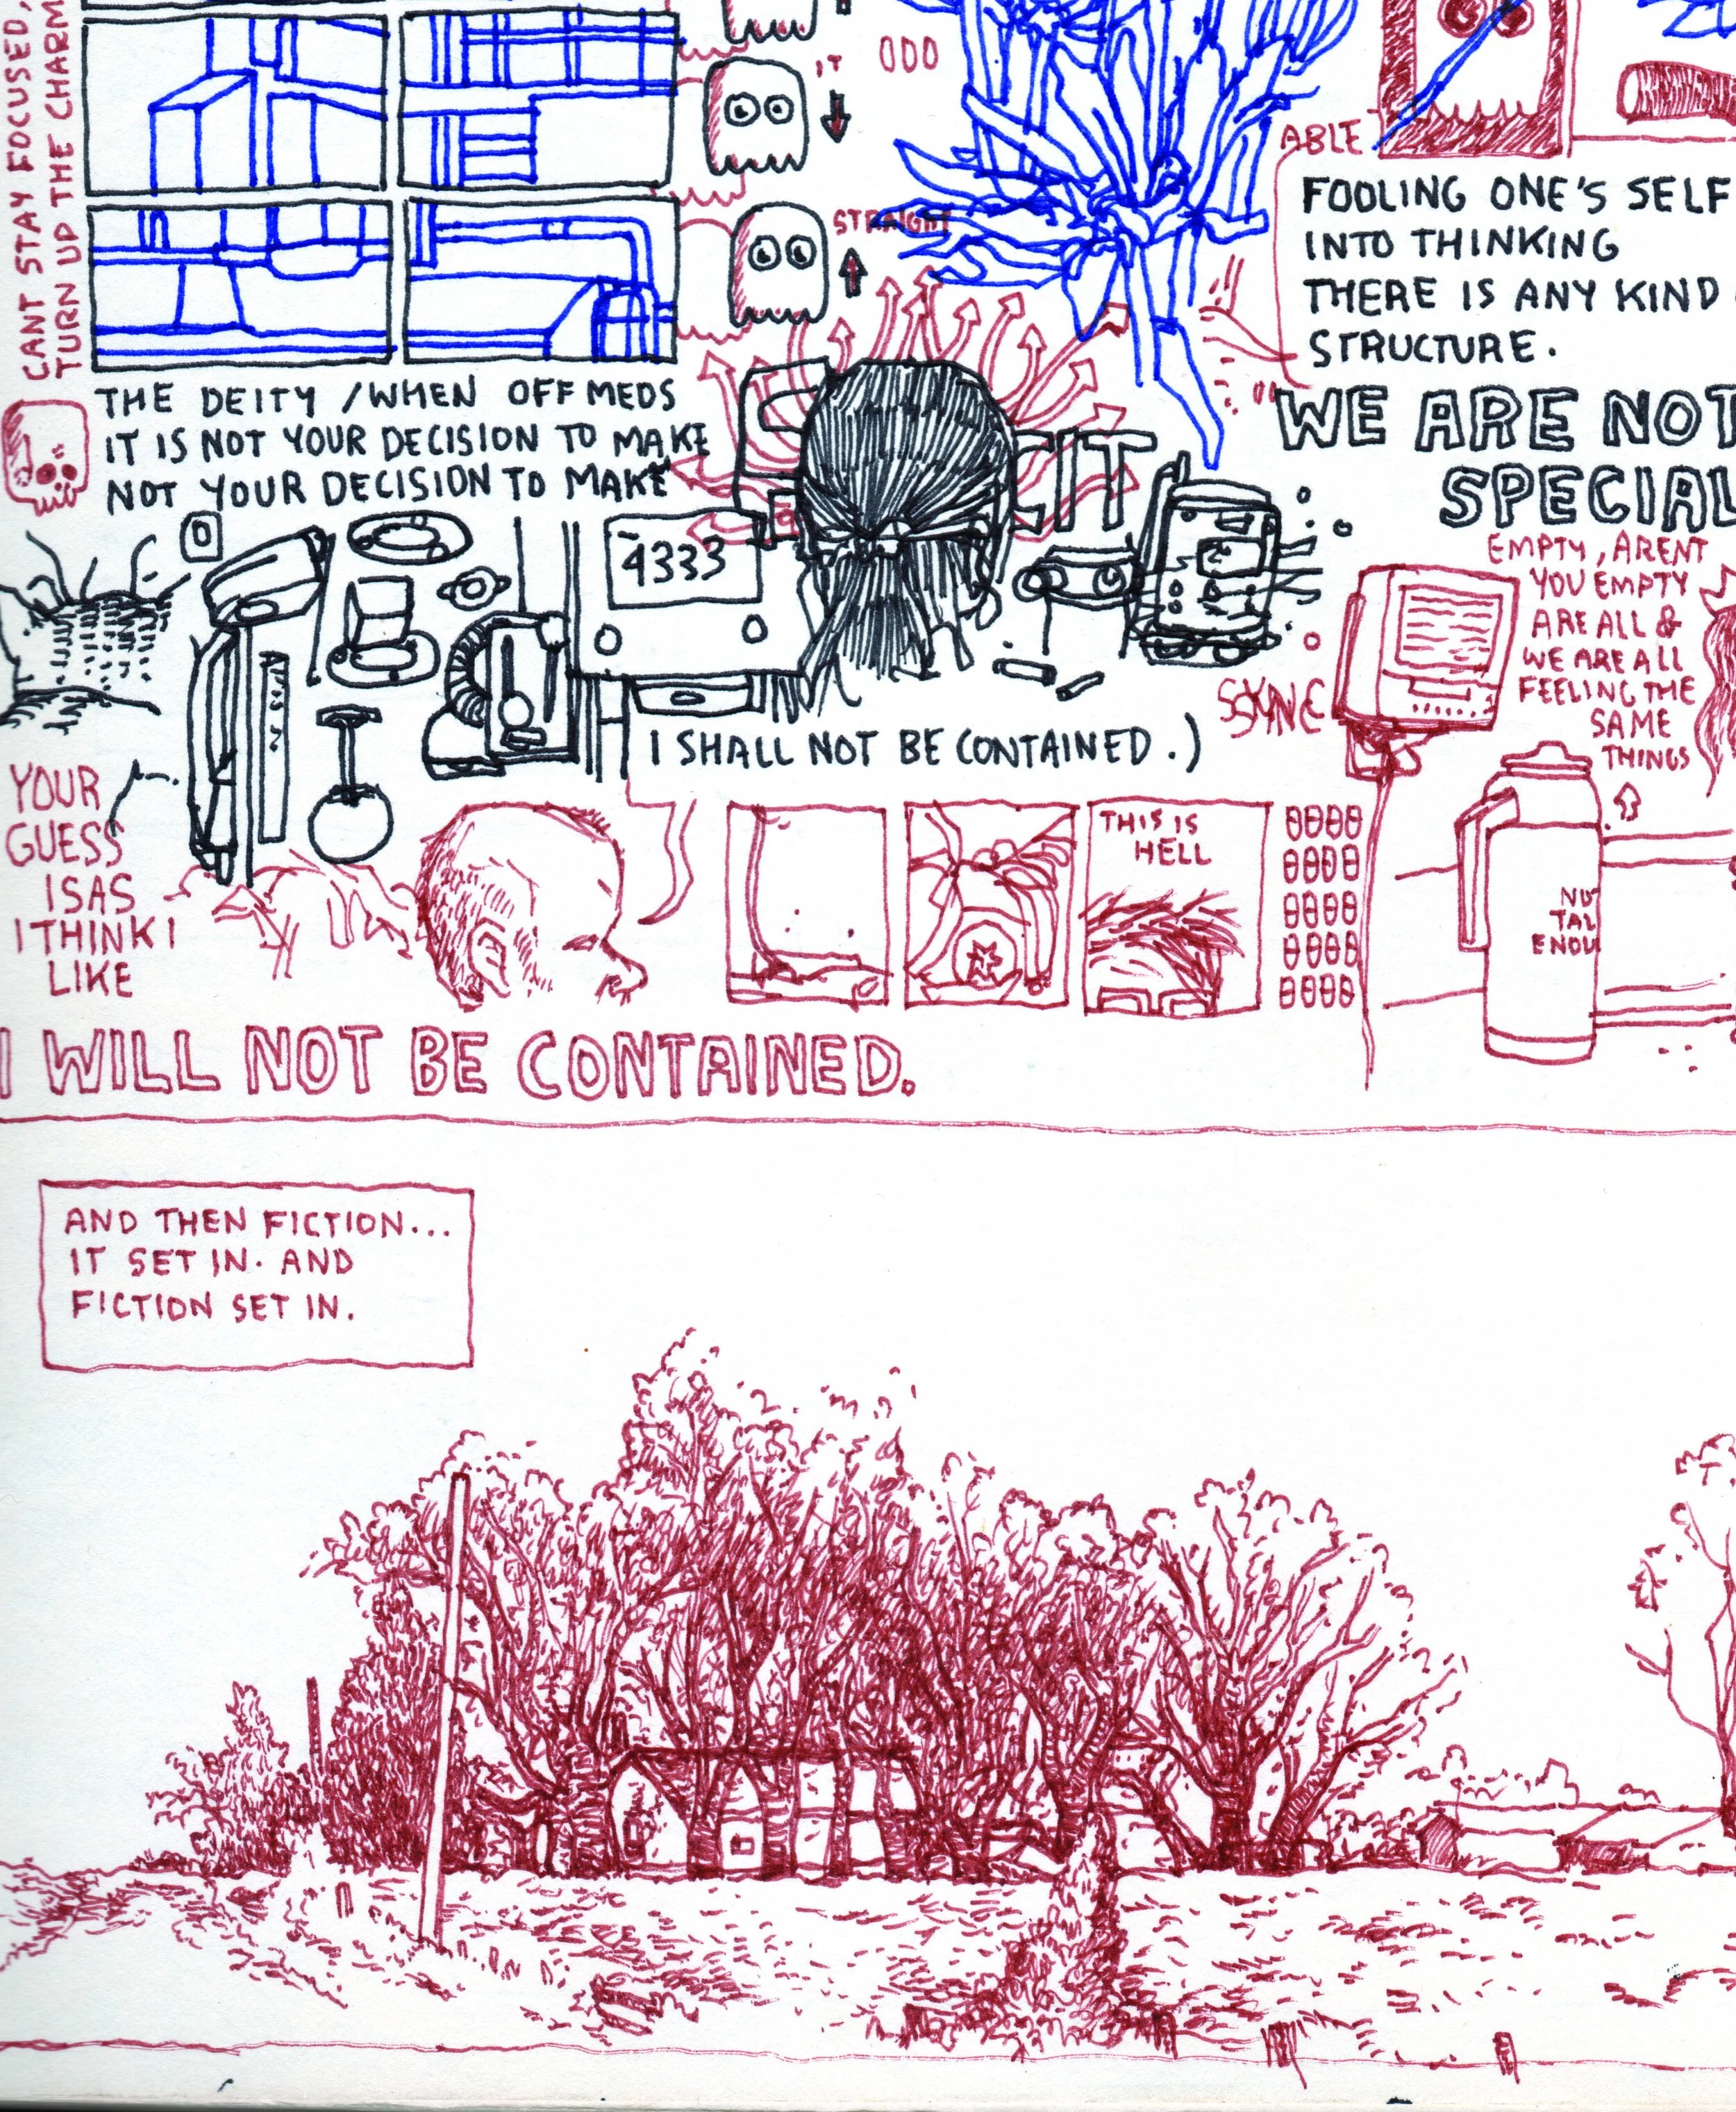 CANT STAY FOCUSED,
TURN UP THE CHARM
IT
STRAIGHT
ABLE
FOOLING ONE'S SELF
INTO THINKING
THERE IS ANY KIND
STRUCTURE.
WE ARE NOT
SPECIAL
THE DEITY / WHEN OFF MEDS
IT IS NOT YOUR DECISION TO MAKE
NOT YOUR DECISION TO MAKE
4333
I SHALL NOT BE CONTAINED.)
SYNC
EMPTY, ARENT
YOU EMPTY
ARE ALL &
WE ARE ALL
FEELING THE
SAME
THINGS
YOUR
GUESS
IS AS
I THINK I
LIKE
THIS IS
HELL
TAL
I WILL NOT BE CONTAINED.
AND THEN FICTION...
IT SET IN. AND
FICTION SET IN.